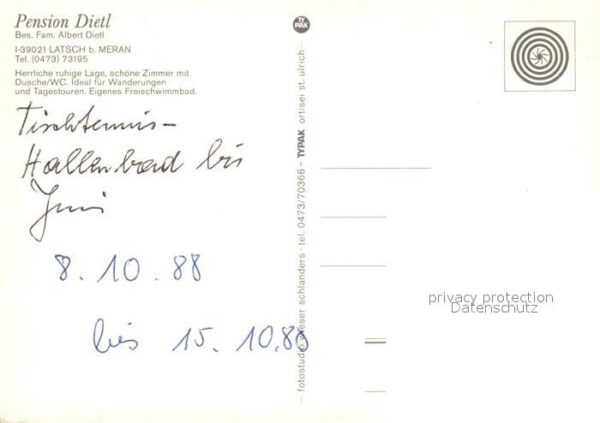 Pension Dietl
Bes. Fam. Albert Dietl
I-39021 LATSCH b. MERAN
Tel. (0473) 73195
Herrliche ruhige Lage, schöne Zimmer mit
Dusche/WC. Ideal für Wanderungen
und Tagestouren. Eigenes Freischwimmbad.
Tischtennis-
Hallenbad bis
Juni
8. 10. 88
bis 15. 10.88
fotostudio wieser schlanders · tel. 0473/70366 – TYPAK ortisei st. ulrich
TY
PAK
privacy protection
Datenschutz